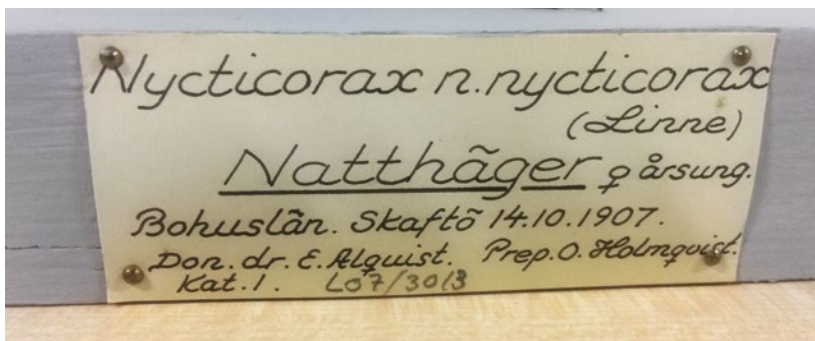 Nycticorax n. nycticorax
(Linne)
Natthäger ♀ årsung.
Bohuslän. Skaftö 14.10.1907.
Don. dr. E. Alquist. Prep. O. Holmqvist.
Kat. 1. L07/3013